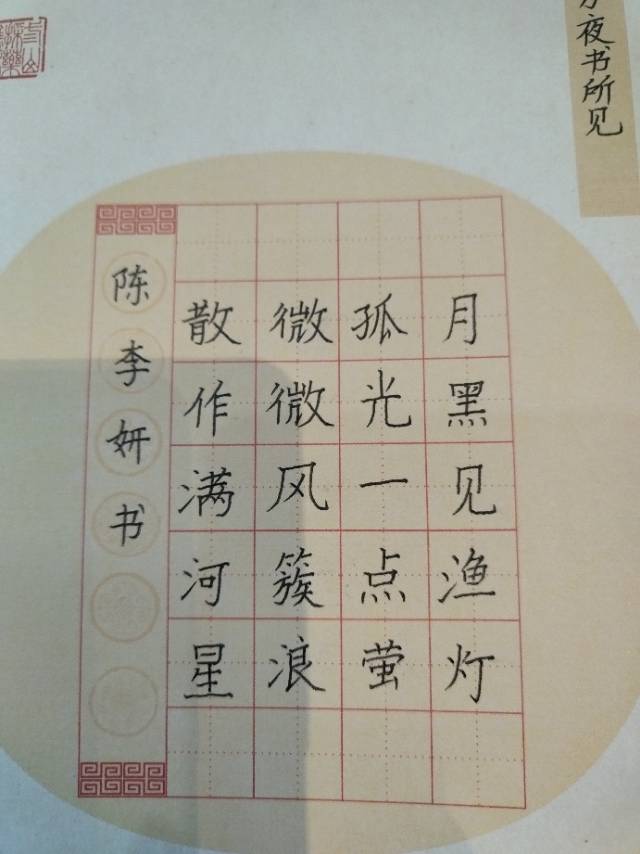 夜书所见
月黑见渔灯
孤光一点萤
微微风簇浪
散作满河星
陈李妍书